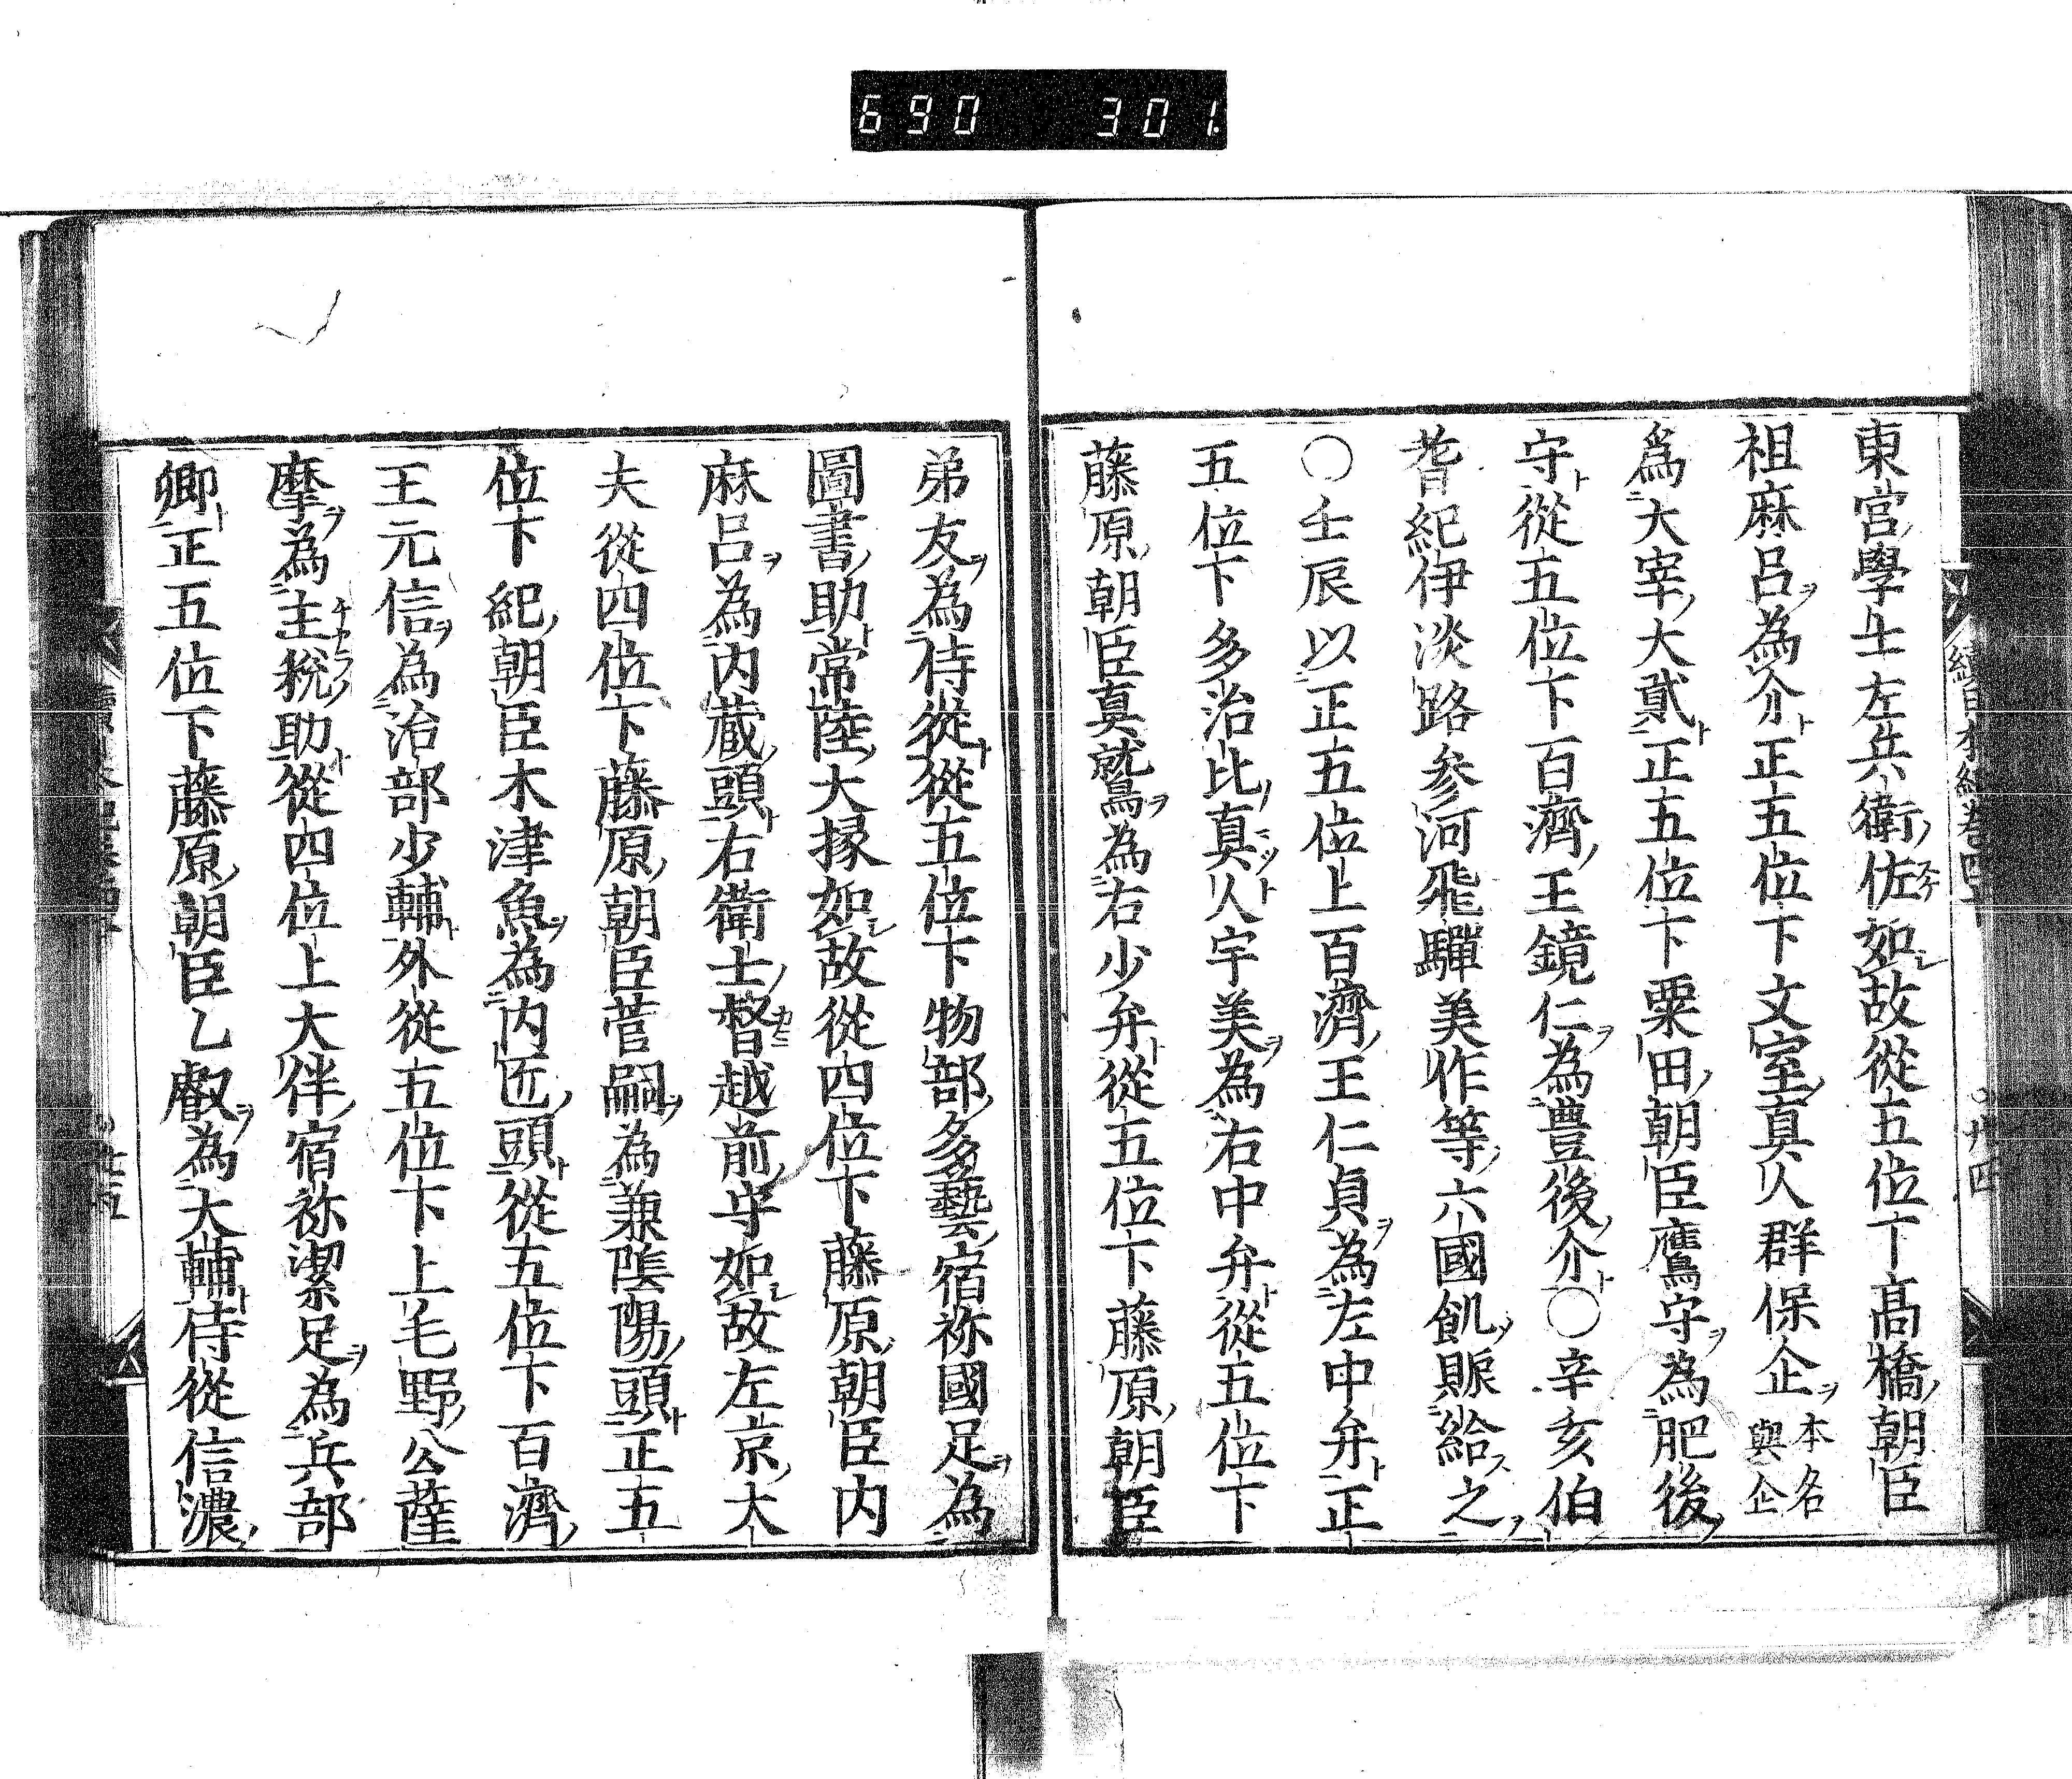 690 301
東宮學士左兵衛佐如故從五位下髙橋朝臣
祖麻呂為介正五位下文室真人群保企本名與企
爲大宰大貳正五位下粟田朝臣鷹守為肥後
守從五位下百濟王鏡仁為豊後介〇辛亥伯
耆紀伊淡路参河飛驒美作等六國飢賑給之
〇壬辰以正五位上百濟王仁貞為左中弁正
五位下多治比真人宇美為右中弁從五位下
藤原朝臣真鷲為右少弁從五位下藤原朝臣
弟友為侍從從五位下物部多藝宿祢國足為
圖書助常陸大掾如故從四位下藤原朝臣内
麻呂為内蔵頭右衛士督越前守如故左京大
夫從四位下藤原朝臣菅嗣為兼陰陽頭正五
位下紀朝臣木津魚為内匠頭從五位下百濟
王元信為治部少輔外從五位下上毛野公薩
摩為主税助從四位上大伴宿祢潔足為兵部
卿正五位下藤原朝臣乙叡為大輔侍從信濃